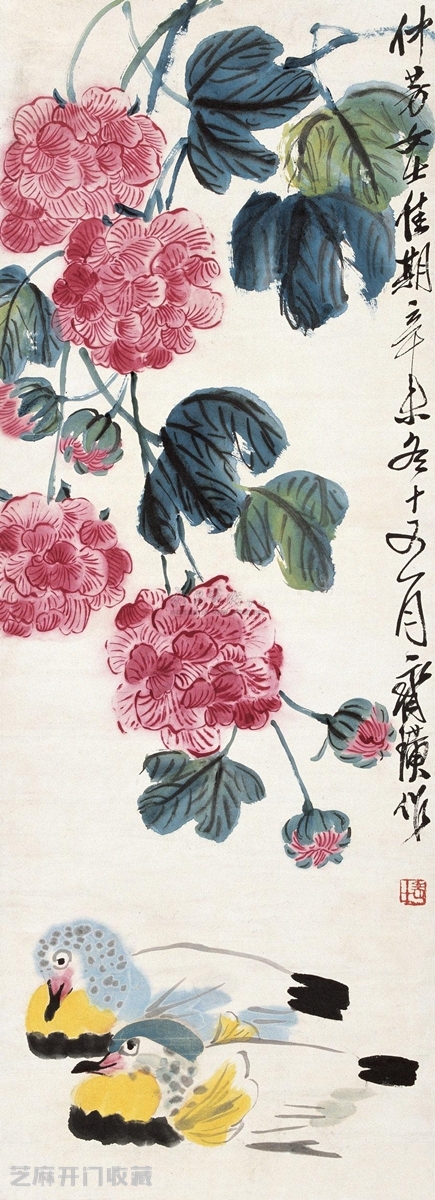 仲芳女士佳期辛未冬十又一月齐璜作
芝麻开门收藏